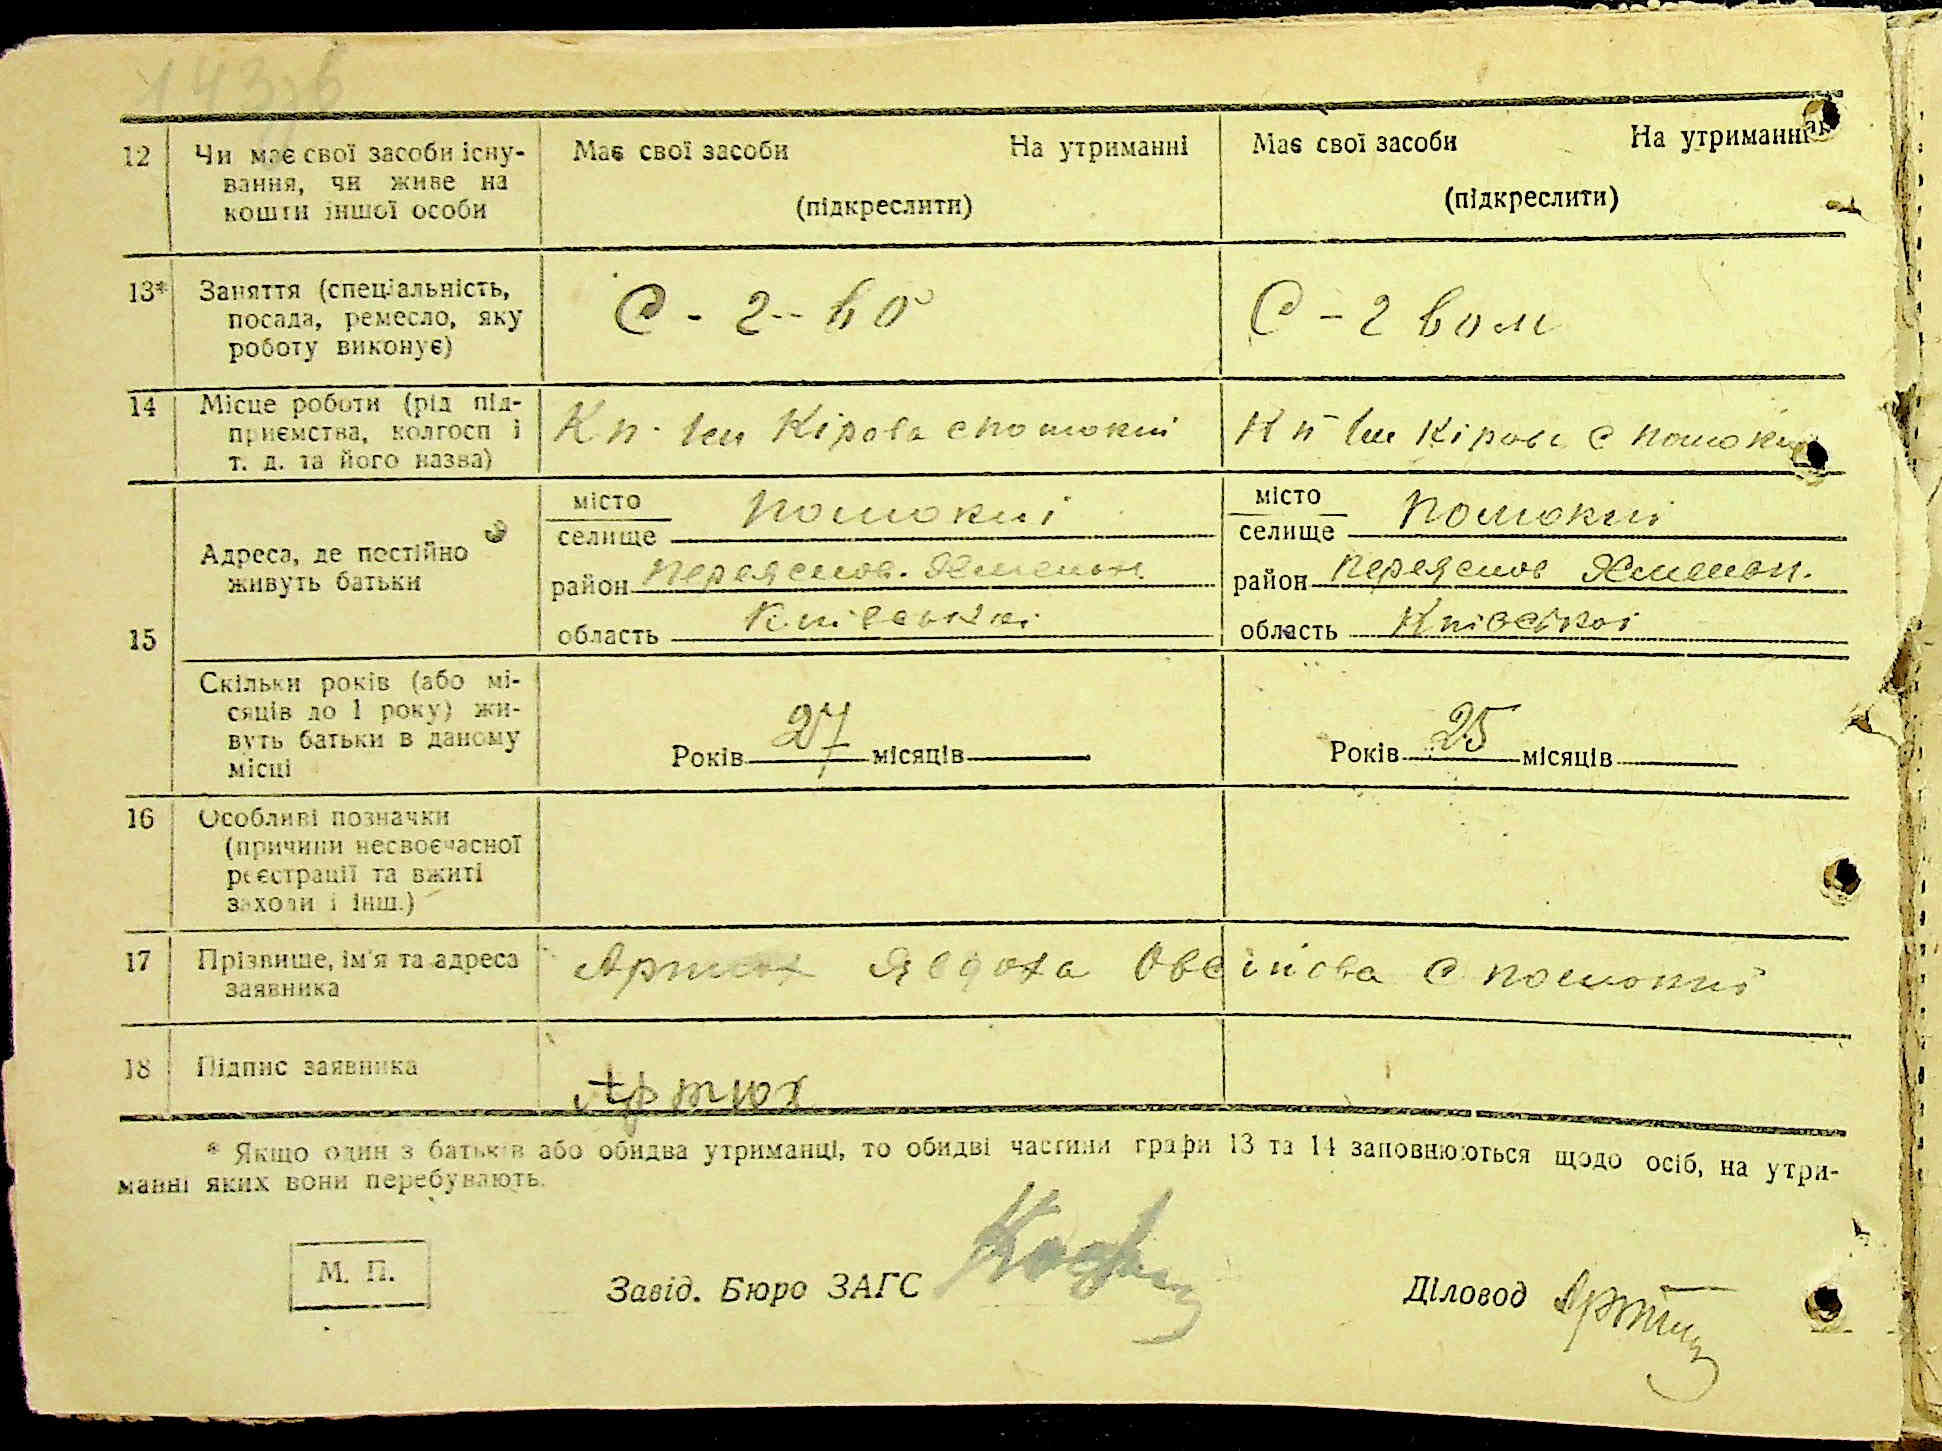 143зв
12 Чи має свої засоби існу-
вання, чи живе на
кошти іншої особи
Має свої засоби На утриманні
(підкреслити)
Має свої засоби На утриманні
(підкреслити)
13* Заняття (спеціальність,
посада, ремесло, яку
роботу виконує)
С - 2 - во
С - 2 вом
14 Місце роботи (рід під-
приємства, колгосп і
т. д. та його назва)
Кп. Ім Кірова с помоклі
Кп Ім Кірова с помоклі
15 Адреса, де постійно
живуть батьки
місто
селище Помоклі
район Переяслов. Хмельн.
область Київської
місто
селище Помоклі
район Переяслов Хмельн.
область Київської
Скільки років (або мі-
сяців до 1 року) жи-
вуть батьки в даному
місці
Років 27 місяців
Років 25 місяців
16 Особливі позначки
(причини несвоєчасної
реєстрації та вжиті
заходи і інш.)
17 Прізвище, ім'я та адреса
заявника
Артюх Явдоха Овсіівна с помоклі
18 Підпис заявника
Артюх
* Якщо один з батьків або обидва утриманці, то обидві частини графи 13 та 14 заповнюються щодо осіб, на утри-
манні яких вони перебувають.
М. П.
Завід. Бюро ЗАГС
Діловод